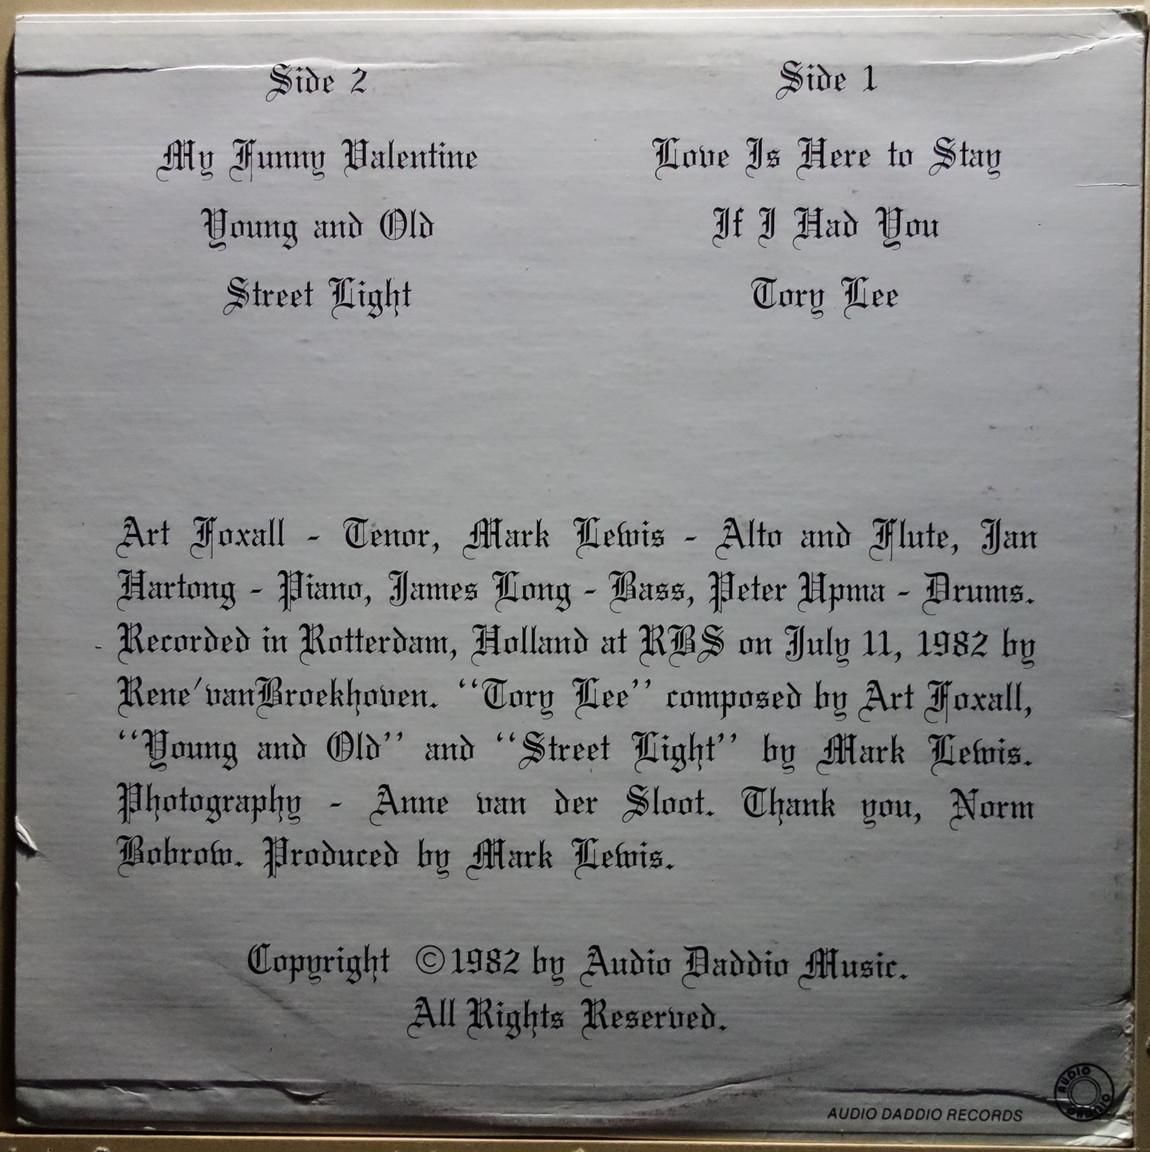 Side 2
My Funny Valentine
Young and Old
Street Light
Side 1
Love Is Here to Stay
If I Had You
Tory Lee
Art Foxall - Tenor, Mark Lewis - Alto and Flute, Jan
Hartong - Piano, James Long - Bass, Peter Upma - Drums.
Recorded in Rotterdam, Holland at RBS on July 11, 1982 by
Rene'vanBroekhoven. "Tory Lee" composed by Art Foxall,
"Young and Old" and "Street Light" by Mark Lewis.
Photography - Anne van der Sloot. Thank you, Norm
Bobrow. Produced by Mark Lewis.
Copyright ©1982 by Audio Daddio Music.
All Rights Reserved.
AUDIO DADDIO RECORDS
AUDIO
DADDIO